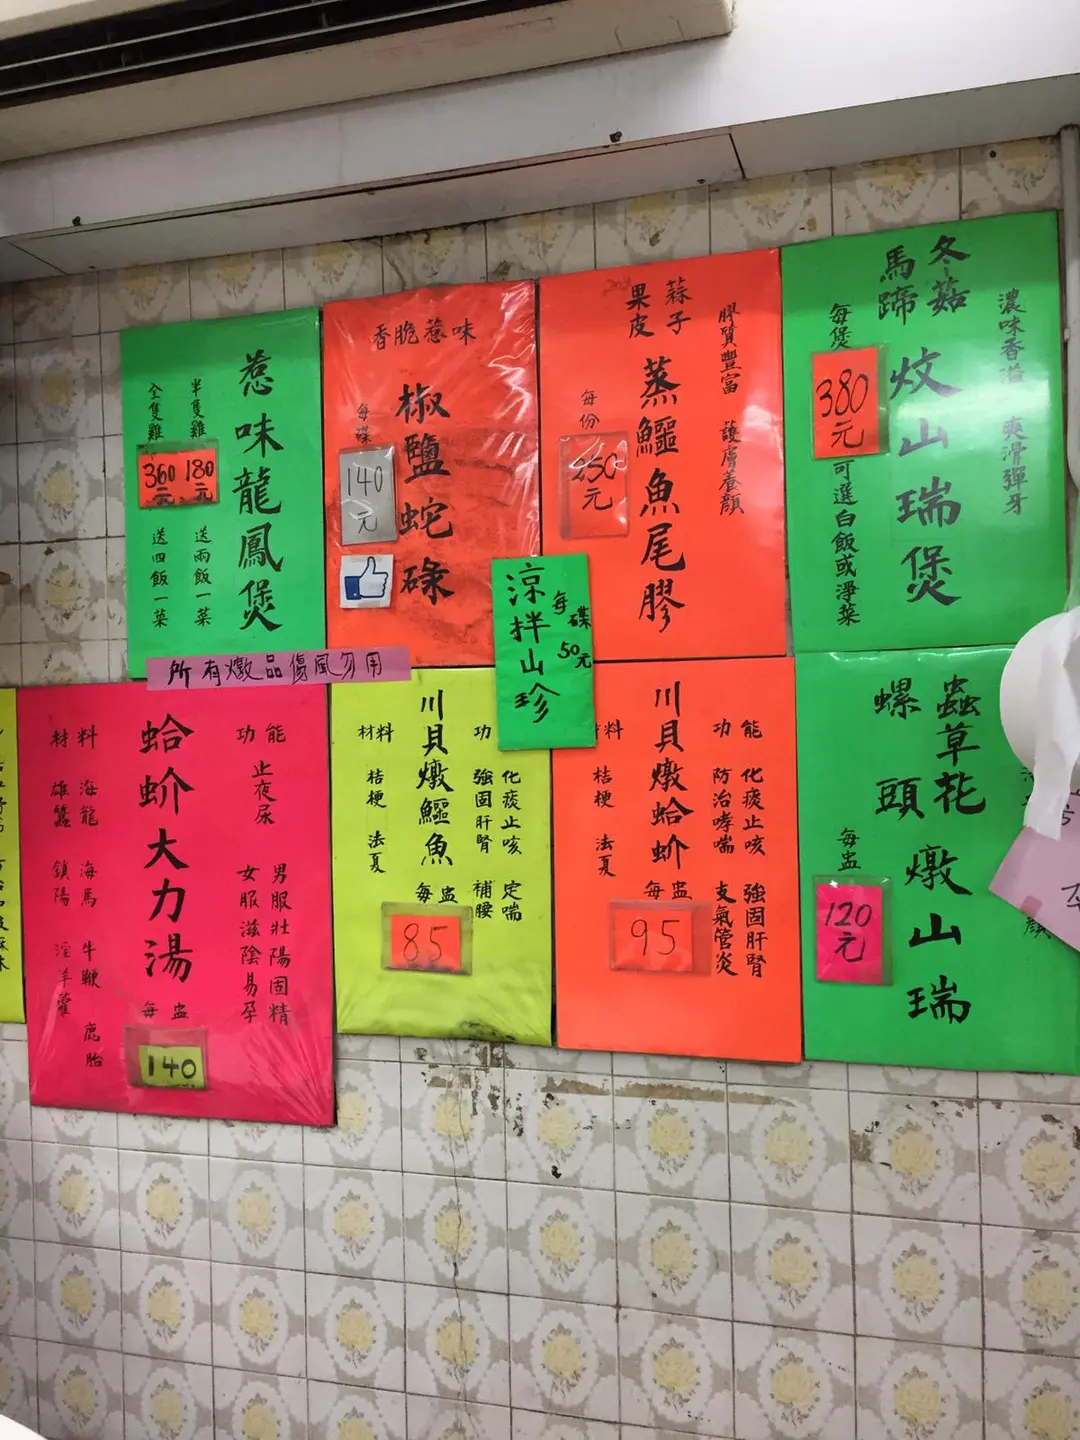 惹味龍鳳煲
半隻雞
180元
送兩飯一菜
全隻雞
360元
送四飯一菜
香脆惹味
椒鹽蛇碌
每碟
140元
膠質豐富 護膚養顏
蒜子
果皮
蒸鱷魚尾膠
每份
元
濃味香溢 爽滑彈牙
冬菇
馬蹄
炆山瑞煲
每煲
380元
可選白飯或淨菜
涼拌山珍
每碟
50元
所有燉品傷風勿用
功能
止夜尿
男服壯陽固精
女服滋陰易孕
蛤蚧大力湯
每盅
140
材料
海龍 海馬 牛鞭 鹿胎
雄蠶 鎖陽 淫羊藿
功
化痰止咳 定喘
強固肝腎 補腰
川貝燉鱷魚
每盅
85
材料
桔梗 法夏
功能
化痰止咳 強固肝腎
防治哮喘 支氣管炎
川貝燉蛤蚧
每盅
95
料
桔梗 法夏
蟲草花
螺頭
燉山瑞
每盅
120元
顏